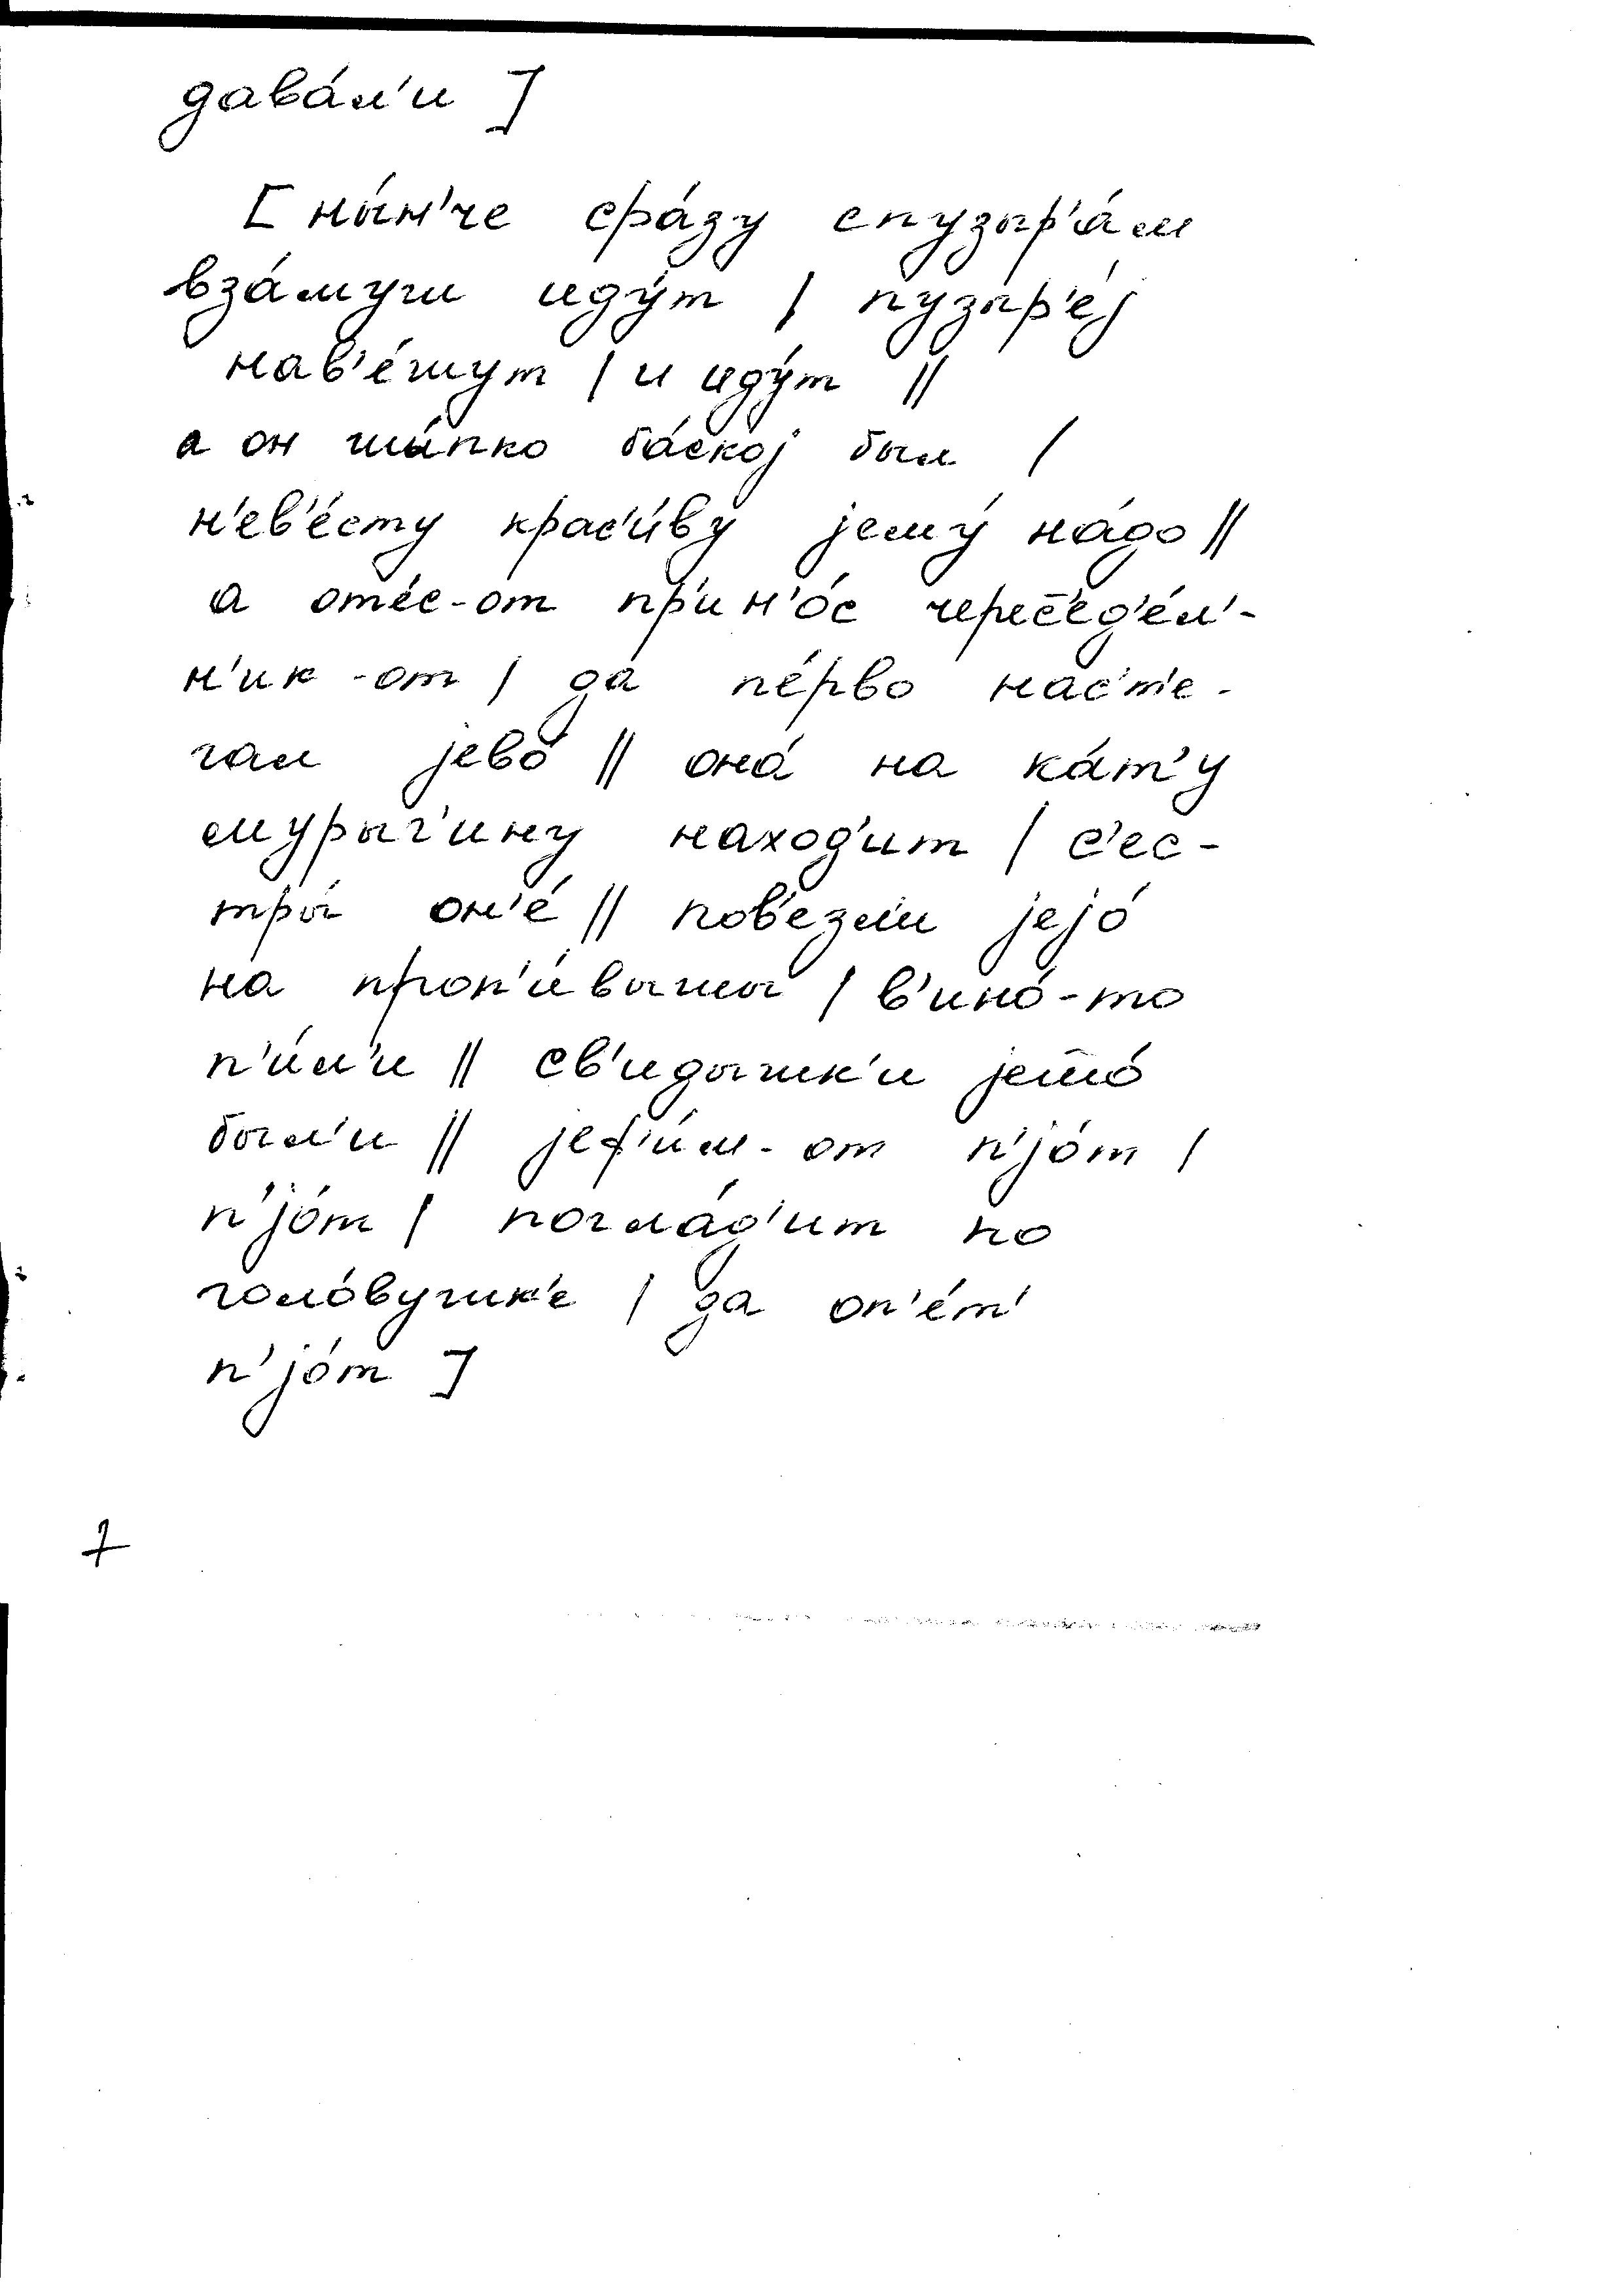 дава́л'и ]
[ ны́н'че сра́зу спузыр'а́м
вза́муш иду́т | пузыр'е́j
нав'е́шут | и иду́т ||
а он шы́пко ба́скоj был |
н'ев'е́сту крас'и́ву jему́ на́до ||
а оте́с-от пр'ин'о́с черес'ед'е́л'-
н'ик-от | да пе́рво нас'т'е-
гал jево́ || она́ на ка́т'у
мурыг'ину наход'ит | с'ес-
тры́ он'е́ || пов'езл'и jejо́
на проп'и́вышы | в'ино́-то
п'и́л'и || св'идышк'и jешшо́
был'и || jеф'и́м-от п'jо́т |
п'jо́т | погла́д'ит по
голо́вушк'е | да оп'е́т'
п'jо́т ]
7